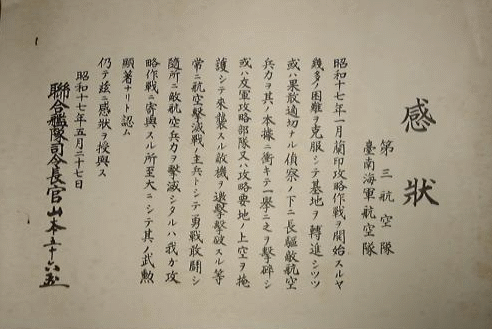 感狀
第三航空隊
臺南海軍航空隊
昭和十七年一月蘭印攻略作戰ヲ開始スルヤ
幾多ノ困難ヲ克服シテ基地ヲ轉進シツツ
或ハ果敢適切ナル偵察ノ下ニ長驅敵航空
兵力ヲ其ノ本據ニ衝キテ一擧ニ之ヲ擊碎シ
或ハ友軍攻略部隊又ハ攻略要地ノ上空ヲ掩
護シテ來襲スル敵機ヲ邀擊擊破スル等
常ニ航空擊滅戰ノ主兵トシテ勇戰敢鬪シ
隨所ニ敵航空兵力ヲ擊滅シタルハ我ガ攻
略作戰ニ寄與スル所至大ニシテ其ノ武勲
顯著ナリト認ム
仍テ玆ニ感狀ヲ授與ス
昭和十七年五月二十七日
聯合艦隊司令長官山本五十六